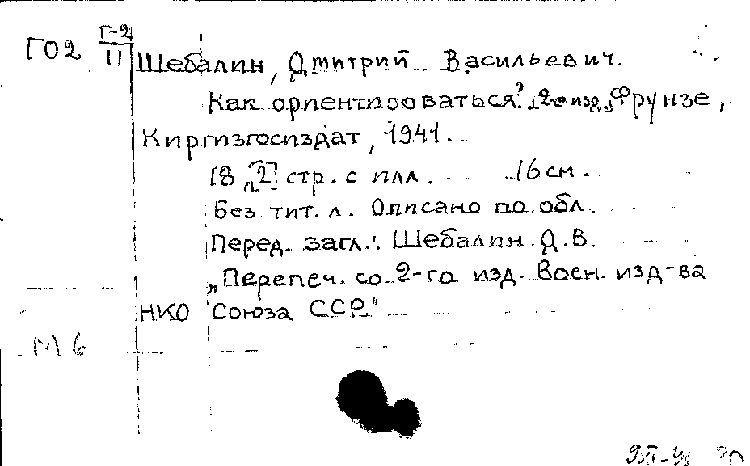 ГО2 Г-2
11 Шебалин, Дмитрий Васильевич.
Как ориентироваться? 2е изд. Фрунзе,
Киргизгосиздат, 1941.
18, [2] стр. с илл. 16 см.
Без тит. л. Описано по обл.
Перед. загл.: Шебалин Д.В.
„Перепеч. со 2-го изд. Воен. изд-ва
НКО Союза ССР"
М 6